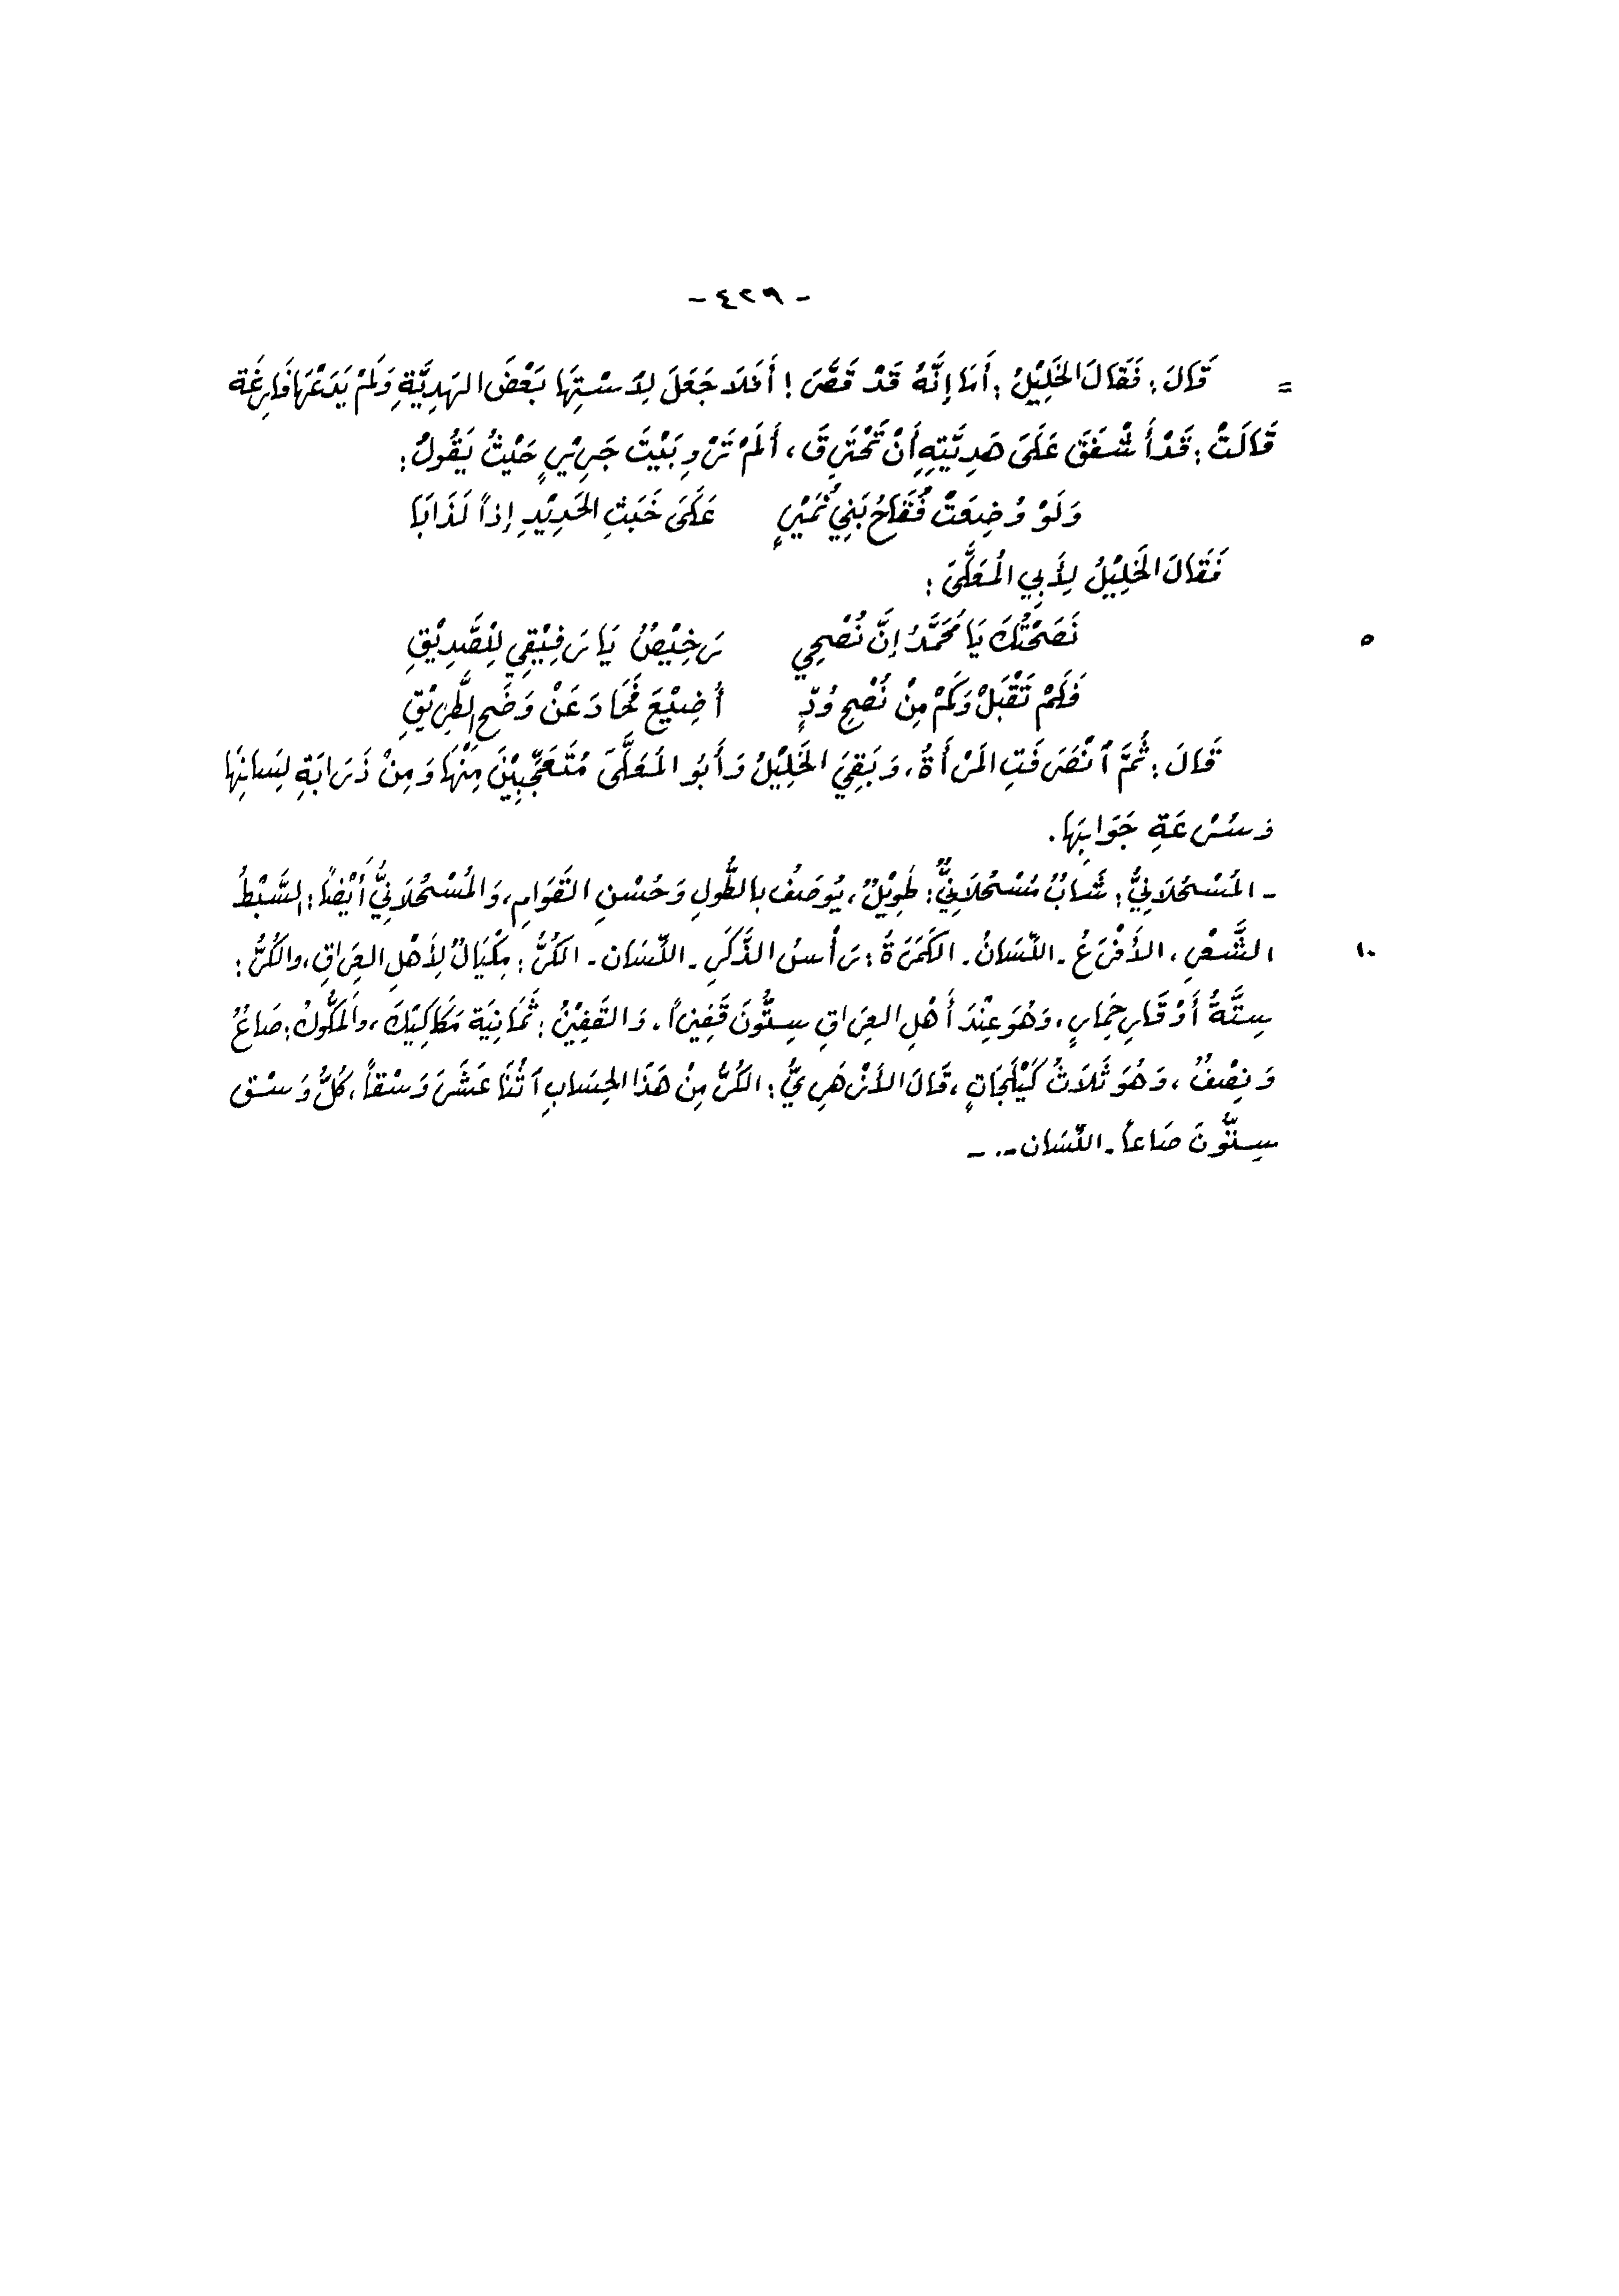 - ٤٢٩ -
= قَالَ: فَقَالَ الخَلِيْلُ: أَمَا إِنَّهُ قَدْ قَصَّرَ! أَفَلَا جَعَلَ لِاُسْتِهَا بَعْضَ الهَدِيَّةِ وَلَمْ يَدَعْهَا فَارِغَة
قَالَتْ: قَدْ أَشْفَقَ عَلَى هَدِيَّتِهِ أَنْ تَحْتَرِقَ، أَلَمْ تَرْوِ بَيْتَ جَرِيْرٍ حَيْثُ يَقُولُ:
وَلَوْ وُضِعَتْ فُقَاحُ بَنِي نُمَيْرٍ عَلَى خَبَثِ الحَدِيْدِ إِذاً لَذَابَا
فَقَالَ الخَلِيْلُ لِأَبِي المُعَلَّى:
٥ نَصَحْتُكَ يَا مُحَمَّدُ إِنَّ نُصْحِي رَخِيْصٌ يَا رَفِيْقِي لِلْصَّدِيْقِ
فَلَمْ تَقْبَلْ وَكَمْ مِنْ نُصْحِ وُدٍّ أُضِيْعَ فَحَادَ عَنْ وَضَحِ الطَّرِيْقِ
قَالَ: ثُمَّ ٱنْصَرَفَتِ المَرْأَةُ، وَبَقِيَ الخَلِيْلُ وَأَبُو المُعَلَّى مُتَعَجِّبِيْنَ مِنْهَا وَمِنْ ذَرَابَةِ لِسَانِهَا
وَسُرْعَةِ جَوَابِهَا.
- المُسْحُلَانِيُّ: شَابٌّ مُسْحُلَانِيٌّ: طَوِيْلٌ، يُوصَفُ بالطُّولِ وَحُسْنِ القَوَامِ، وَالمُسْحُلَانِيُّ أَيْضاً: السَّبْطُ
١٠ الشَّعْرِ، الأَفْرَعُ - اللِّسَانُ - الكَمَرَةُ: رَأْسُ الذَّكَرِ - اللِّسَان - الكُرُّ: مِكْيَالٌ لِأَهْلِ العِرَاقِ، والكُرُّ:
سِتَّةُ أَوْقَارِ حِمَارٍ، وَهُوَ عِنْدَ أَهْلِ العِرَاقِ سِتُّونَ قَفِيْزاً، وَالقَفِيْزُ: ثَمَانِيَة مَكَاكِيْكَ، والمَكُّوكُ: صَاعٌ
وَنِصْفٌ، وَهُوَ ثَلَاثُ كَيْلَجَاتٍ، قَالَ الأَزْهَرِيُّ: الكُرُّ مِنْ هَذَا الحِسَابِ ٱثْنَا عَشَرَ وَسْقاً، كُلُّ وَسْق
سِتُّونَ صَاعاً - اللِّسَان -. -